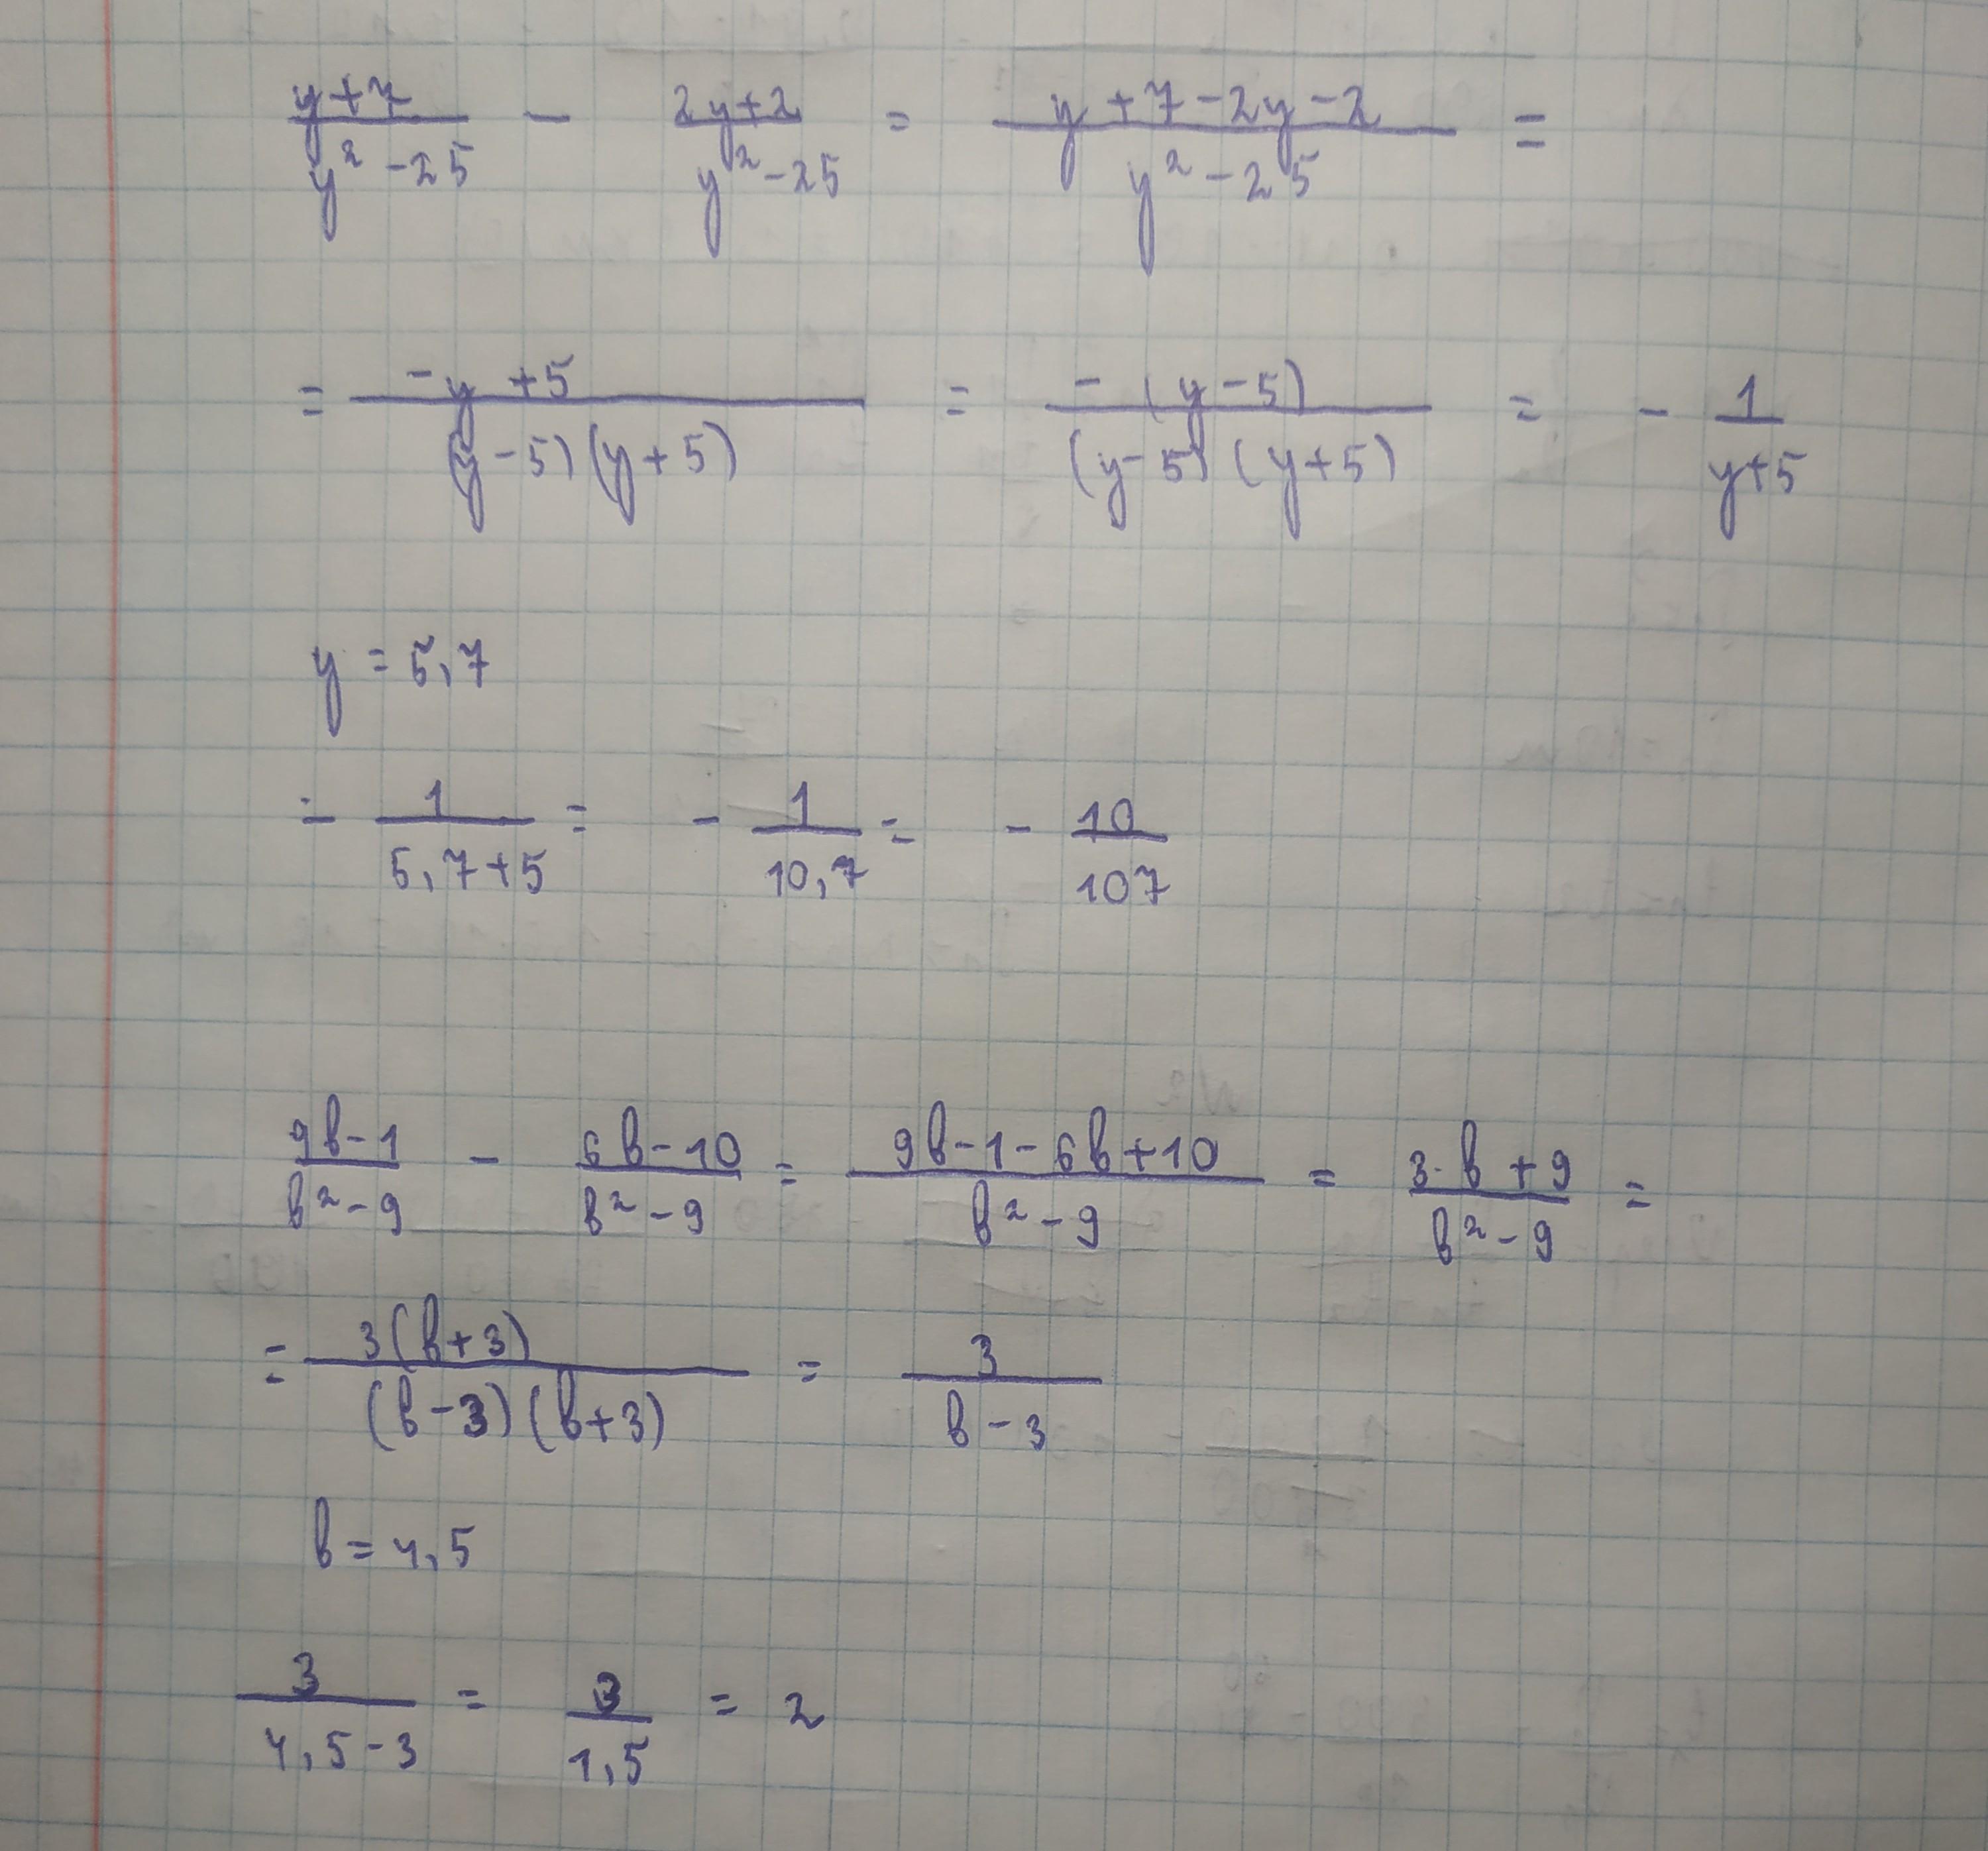 (y+7)/(y²-25) - (2y+2)/(y²-25) = (y+7-2y-2)/(y²-25) =
= (-y+5)/((y-5)(y+5)) = (-(y-5))/((y-5)(y+5)) = - 1/(y+5)
y = 5,7
- 1/(5,7+5) = - 1/(10,7) = - 10/107
(9b-1)/(b²-9) - (6b-10)/(b²-9) = (9b-1-6b+10)/(b²-9) = (3·b+9)/(b²-9) =
= (3(b+3))/((b-3)(b+3)) = 3/(b-3)
b = 4,5
3/(4,5-3) = 3/(1,5) = 2